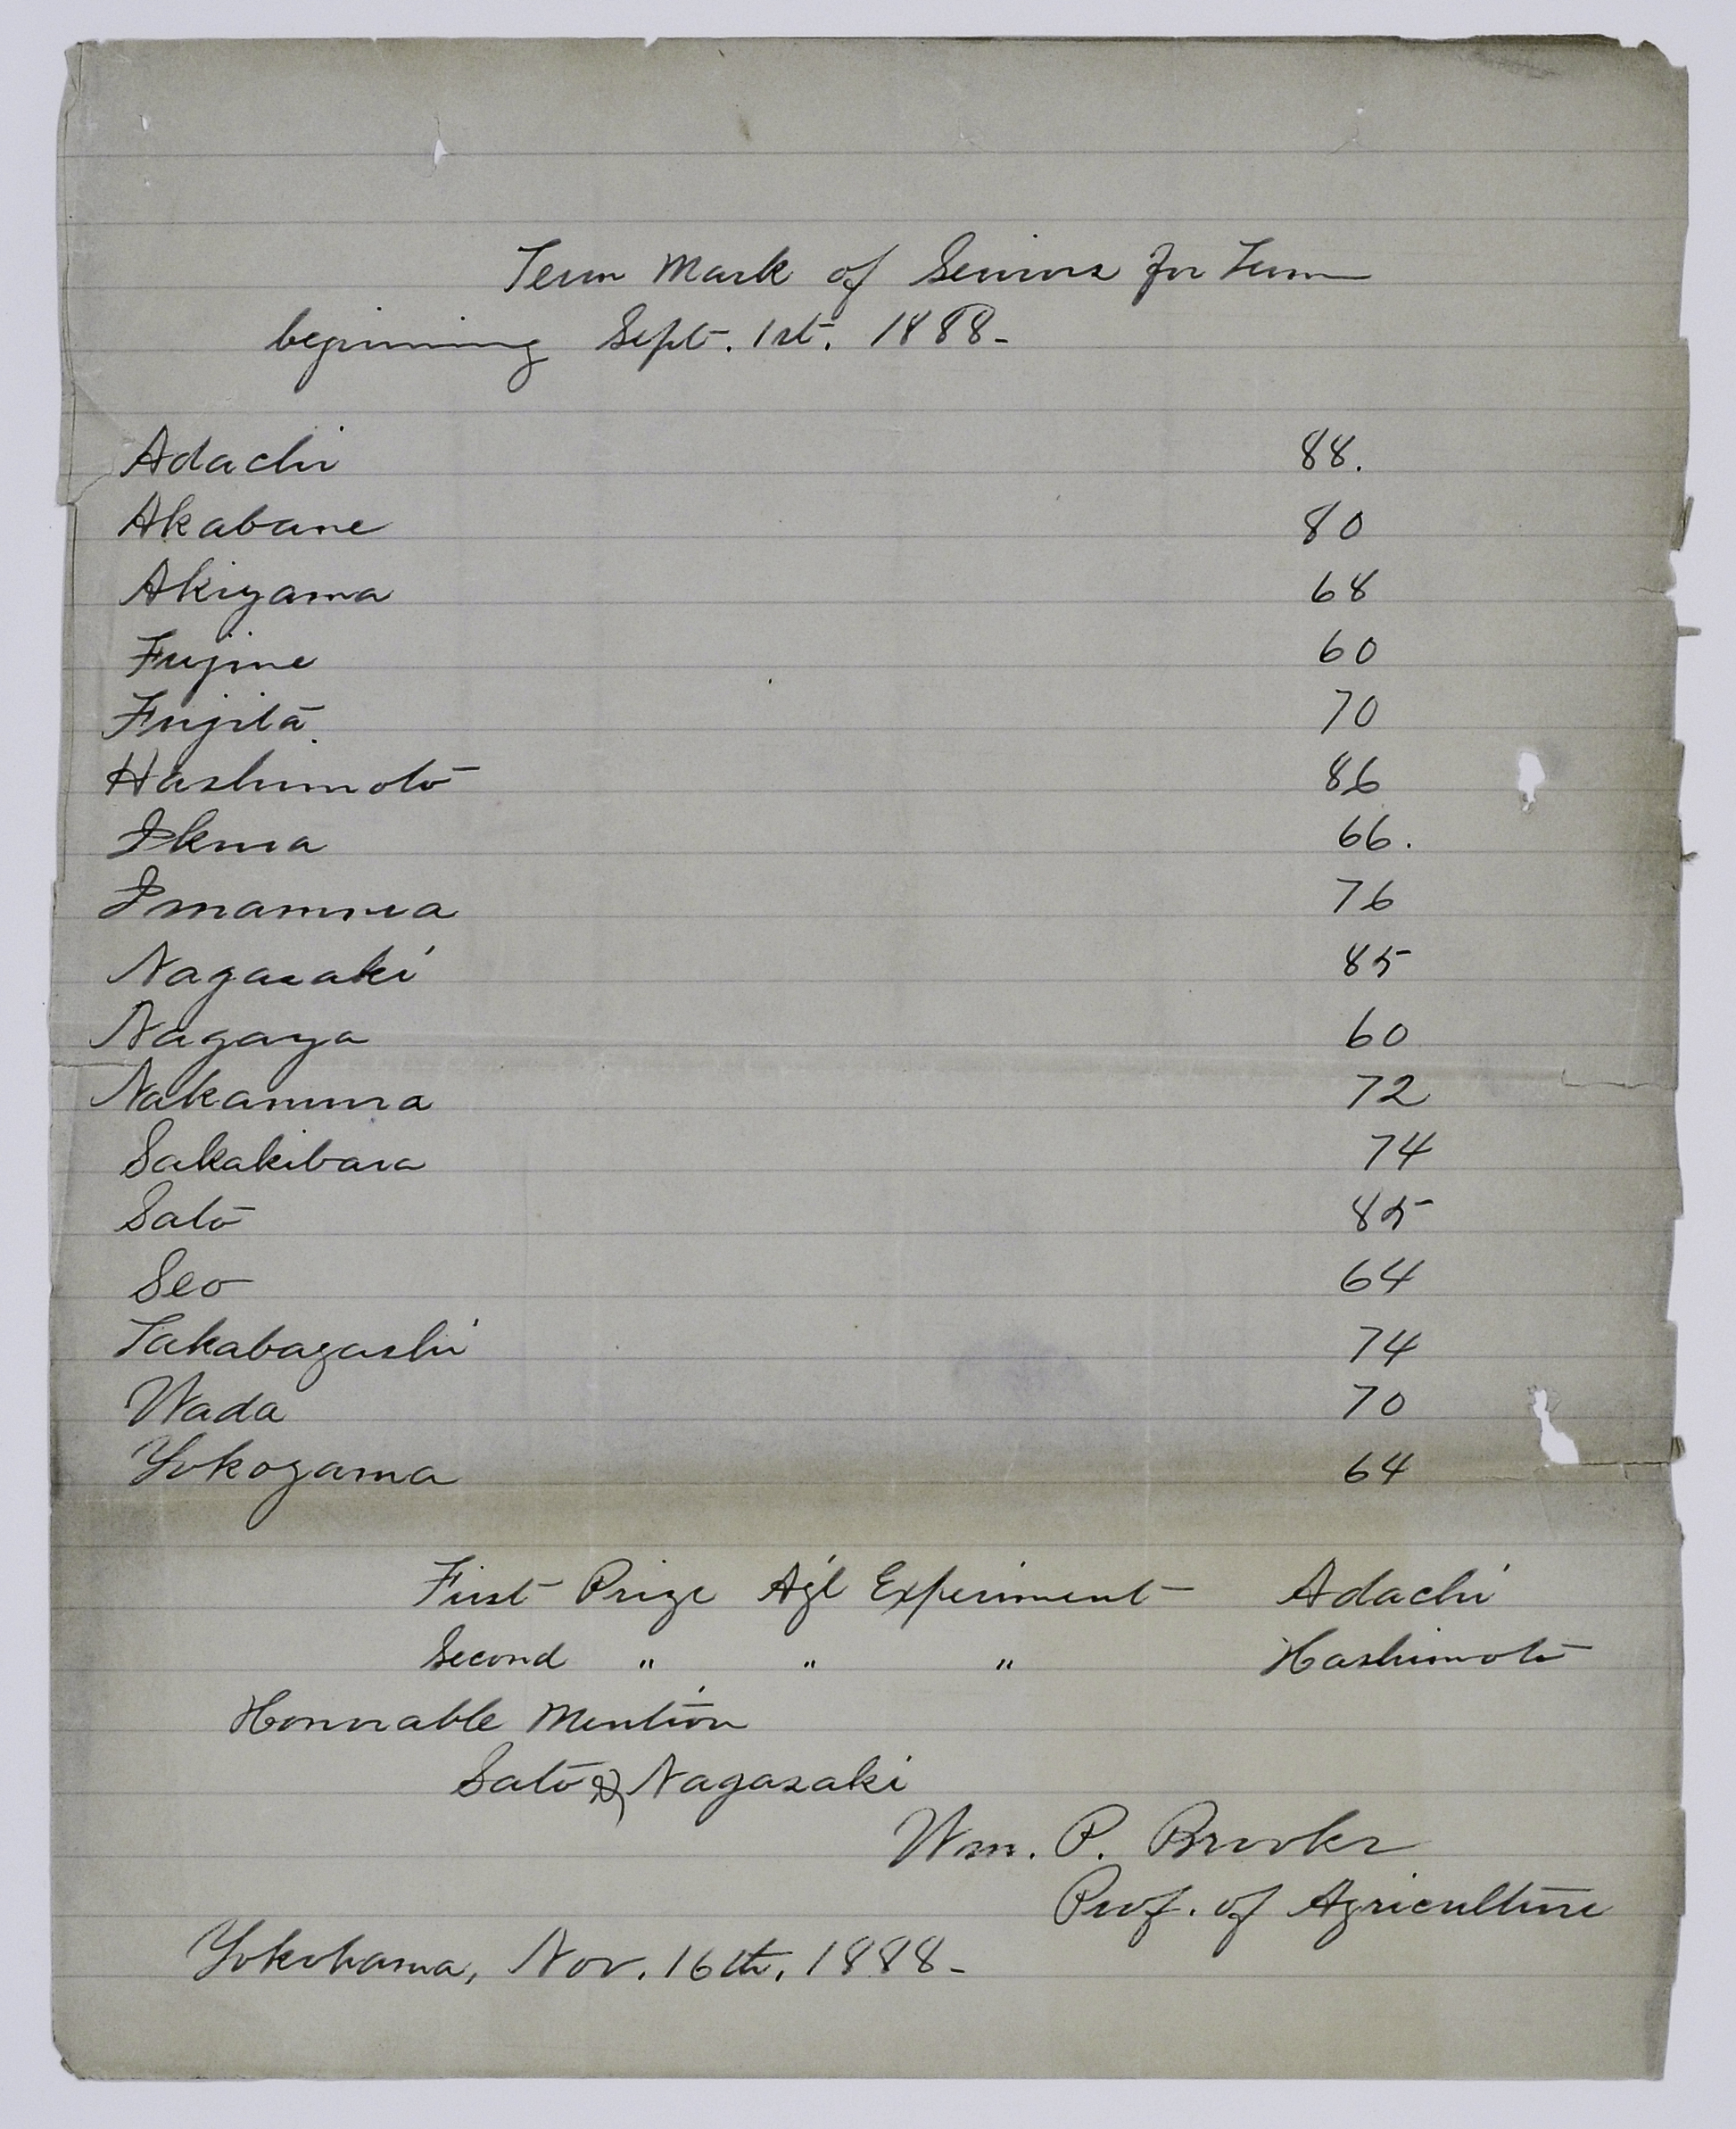 Term Mark of Seniors for Term
beginning Sept. 1st. 1888-
Adachi 88.
Akabane 80
Akiyama 68
Fujine 60
Fujita 70
Hashimoto 86
Ikura 66.
Imamura 76
Nagasaki 85
Nagaya 60
Nakamura 72
Sakakibara 74
Sato 85
Seo 64
Takabayashi 74
Wada 70
Yokoyama 64
First Prize Ag'l Experiment Adachi
Second " " " Hashimoto
Honorable Mention
Sato & Nagasaki
Wm. P. Brooks
Prof. of Agriculture
Yokohama, Nov. 16th, 1888-